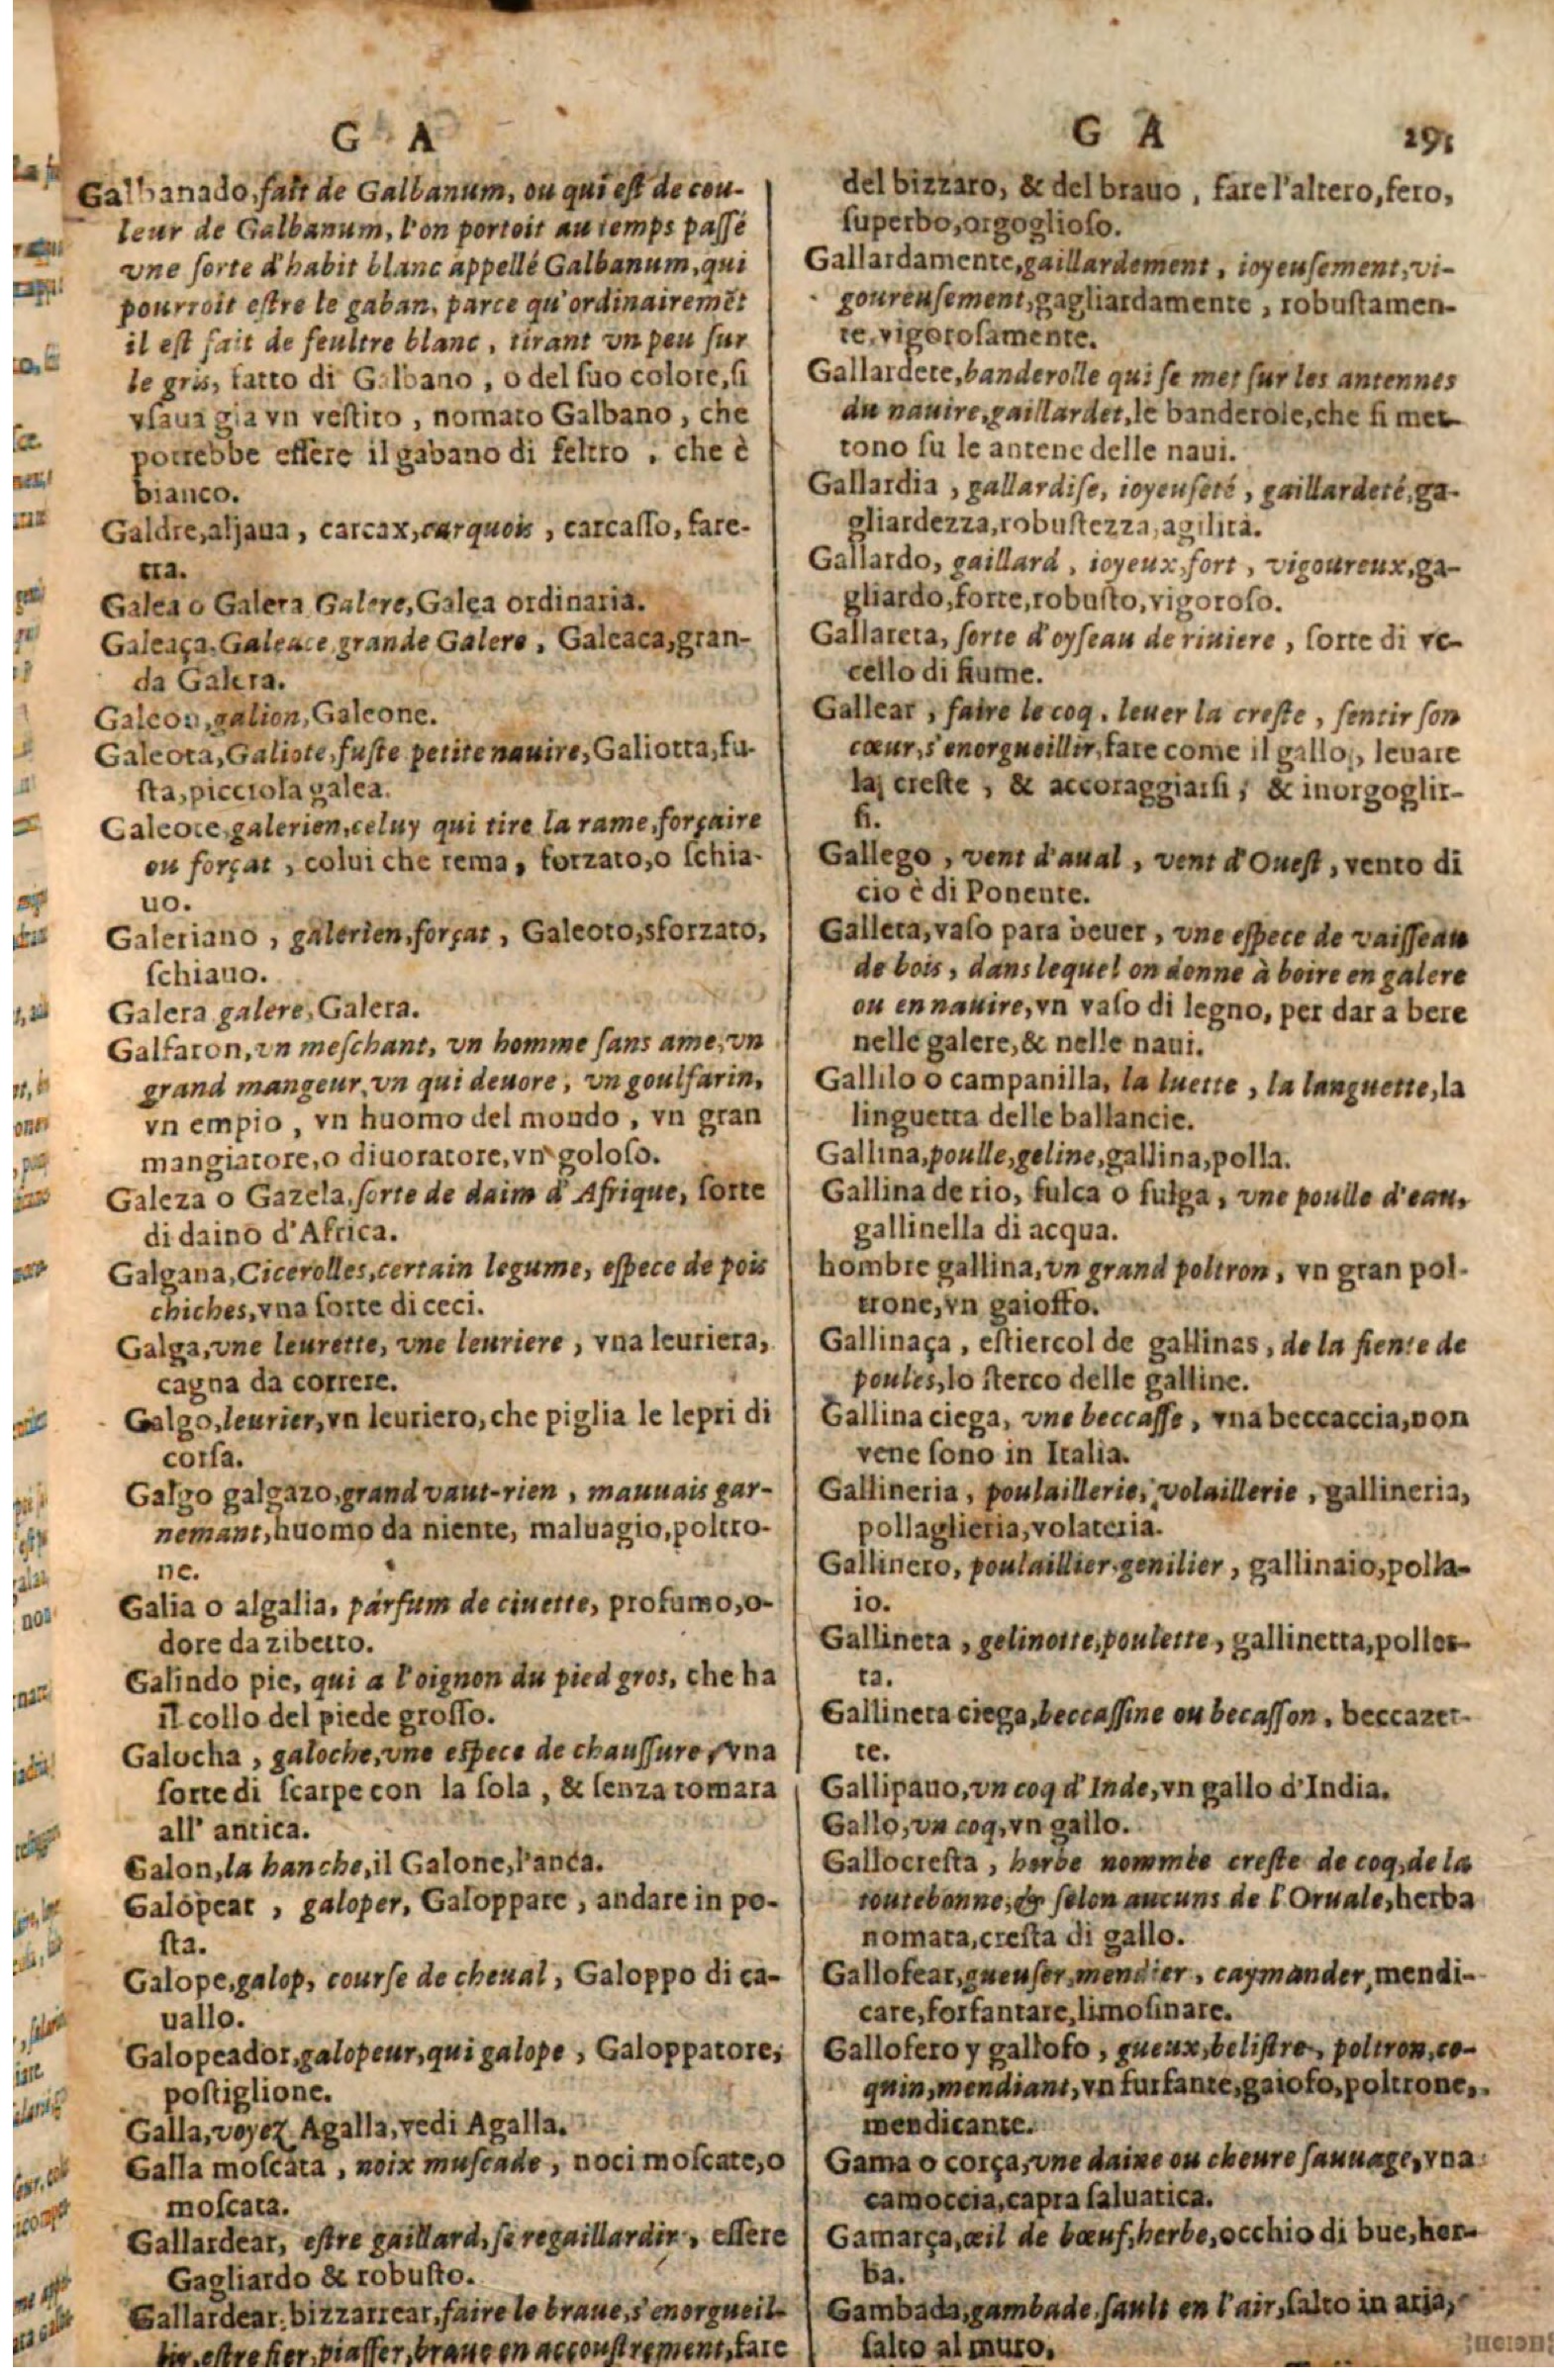 G A
Galbanado, fait de Galbanum, ou qui eſt de cou-
leur de Galbanum, l'on portoit au temps paſſé
vne ſorte d'habit blanc appellé Galbanum, qui
pourroit eſtre le gaban, parce qu'ordinairemẽt
il eſt fait de feultre blanc, tirant vn peu ſur
le gris, fatto di Galbano, o del ſuo colore, ſi
vſaua gia vn veſtito, nomato Galbano, che
potrebbe eſſere il gabano di feltro, che è
bianco.
Galdre, aljaua, carcax, carquois, carcaſſo, fare-
tra.
Galea o Galera Galere, Galea ordinaria.
Galeaça. Galeace grande Galere, Galeaca, gran-
da Galera.
Galeon, galion, Galeone.
Galeota, Galiote, fuſte petite nauire, Galiotta, fu-
ſta, picciola galea.
Galeote, galerien, celuy qui tire la rame, forçaire
ou forçat, colui che rema, forzato, o ſchia-
uo.
Galeriano, galerien, forçat, Galeoto, sforzato,
ſchiauo.
Galera galere, Galera.
Galfaron, vn meſchant, vn homme ſans ame, vn
grand mangeur, vn qui deuore, vn goulfarin,
vn empio, vn huomo del mondo, vn gran
mangiatore, o diuoratore, vn goloſo.
Galeza o Gazela, ſorte de daim d'Afrique, ſorte
di daino d'Africa.
Galgana, Cicerolles, certain legume, eſpece de pois
chiches, vna ſorte di ceci.
Galga, vne leurette, vne leuriere, vna leuriera,
cagna da correre.
Galgo, leurier, vn leuriero, che piglia le lepri di
corſa.
Galgo galgazo, grand vaut-rien, mauuais gar-
nemant, huomo da niente, maluagio, poltro-
ne.
Galia o algalia, parfum de ciuette, profumo, o-
dore da zibetto.
Galindo pie, qui a l'oignon du pied gros, che ha
il collo del piede groſſo.
Galocha, galoche, vne eſpece de chauſſure, vna
ſorte di ſcarpe con la ſola, & ſenza tomara
all' antica.
Galon, la hanche, il Galone, l'anca.
Galopear, galoper, Galoppare, andare in po-
ſta.
Galope, galop, courſe de cheual, Galoppo di ca-
uallo.
Galopeador, galopeur, qui galope, Galoppatore,
poſtiglione.
Galla, voyez Agalla, vedi Agalla.
Galla moſcata, noix muſcade, noci moſcate, o
moſcata.
Gallardear, eſtre gaillard, ſe regaillardir, eſſere
Gagliardo & robuſto.
Gallardear, bizzarrear, faire le braue, s'enorgueil-
lir, eſtre fier, piaffer, braue en accouſtrement, fare
G A 291
del bizzaro, & del brauo, fare l'altero, fero,
ſuperbo, orgoglioſo.
Gallardamente, gaillardement, ioyeuſement, vi-
goureuſement, gagliardamente, robuſtamen-
te, vigoroſamente.
Gallardete, banderolle qui ſe met ſur les antennes
du nauire, gaillardet, le banderole, che ſi met-
tono ſu le antene delle naui.
Gallardia, gallardiſe, ioyeuſeté, gaillardeté, ga-
gliardezza, robuſtezza, agilità.
Gallardo, gaillard, ioyeux, fort, vigoureux, ga-
gliardo, forte, robuſto, vigoroſo.
Gallareta, ſorte d'oyſeau de riuiere, ſorte di vc-
cello di fiume.
Gallear, faire le coq, leuer la creſte, ſentir ſon
cœur, s'enorgueillir, fare come il gallo, leuare
la creſte, & accoraggiarſi, & inorgoglir-
ſi.
Gallego, vent d'aual, vent d'Oueſt, vento di
cio è di Ponente.
Galleta, vaſo para beuer, vne eſpece de vaiſſeau
de bois, dans lequel on donne à boire en galere
ou en nauire, vn vaſo di legno, per dar a bere
nelle galere, & nelle naui.
Gallilo o campanilla, la luette, la languette, la
linguetta delle ballancie.
Gallina, poulle, geline, gallina, polla.
Gallina de rio, fulca o fulga, vne poulle d'eau,
gallinella di acqua.
hombre gallina, vn grand poltron, vn gran pol-
trone, vn gaioffo.
Gallinaça, eſtiercol de gallinas, de la fiente de
poules, lo ſterco delle galline.
Gallina ciega, vne beccaſſe, vna beccaccia, non
vene ſono in Italia.
Gallineria, poulaillerie, volaillerie, gallineria,
pollaglieria, volateria.
Gallinero, poulaillier, genilier, gallinaio, polla-
io.
Gallineta, gelinotte, poulette, gallinetta, pollet-
ta.
Gallineta ciega, beccaſſine ou becaſſon, beccazet-
te.
Gallipauo, vn coq d'Inde, vn gallo d'India.
Gallo, vn coq, vn gallo.
Gallocreſta, herbe nommée creſte de coq, de la
toutebonne, & ſelon aucuns de l'Oruale, herba
nomata, creſta di gallo.
Gallofear, gueuſer, mendier, caymander, mendi-
care, forfantare, limoſinare.
Gallofero y gallofo, gueux, beliſtre, poltron, co-
quin, mendiant, vn furfante, gaiofo, poltrone,
mendicante.
Gama o corça, vne daine ou cheure ſauuage, vna
camoccia, capra ſaluatica.
Gamarça, œil de bœuf, herbe, occhio di bue, her-
ba.
Gambada, gambade, ſault en l'air, ſalto in aria,
ſalto al muro.